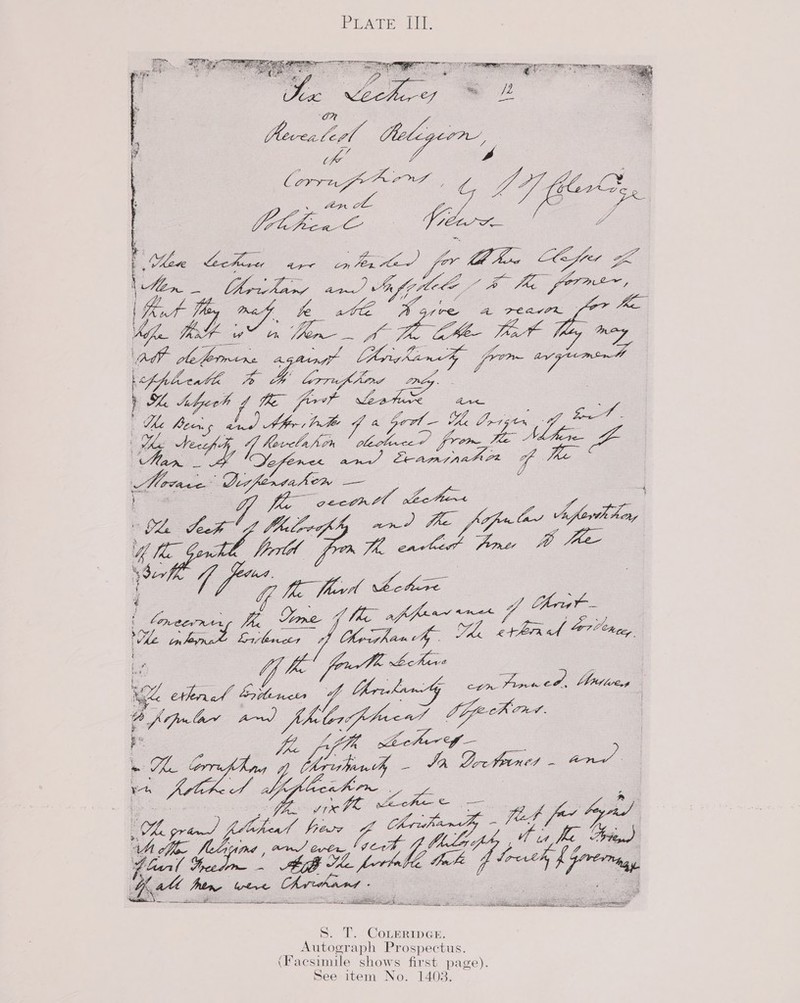 PLATE III.
Six Lectures 12
on
Revealed Religion,
its
Corruptions, by S T Coleridge
and
Political Views.
These Lectures are intended for two Classes of
Men – Christians and Infidels / to the former,
that they may be able to give a reason for the
hope that is in them – to the latter that they may
not determine against Christianity from arguments
applicable to its Corruptions only.
The Subjects of the first Lecture are
The Being and Attributes of a God – The Origin of Evil.
The Necessity of Revelation deduced from the Nature of
Man – A Defence and Examination of the
Mosaic Dispensation –
Of the second Lecture
The Sects of Philosophy and the popular Superstitions
of the Gentile World from the earliest times to the
Birth of Jesus.
Of the third Lecture
Concerning the Time of the appearance of Christ –
The internal Evidences of Christianity. The external Evidences.
Of the fourth Lecture
The external Evidences of Christianity continued. Answers
to popular and philosophical Objections.
The fifth Lecture –
– The Corruptions of Christianity – In Doctrines – and
in political application.
The sixth Lecture –
The grand political Views of Christianity – that far beyond
other Religions, and even Sects of Philosophy, it is the Friend
of Civil Freedom – The probable state of Society & Governments
if all men were Christians.
S. T. COLERIDGE.
Autograph Prospectus.
(Facsimile shows first page).
See item No. 1403.